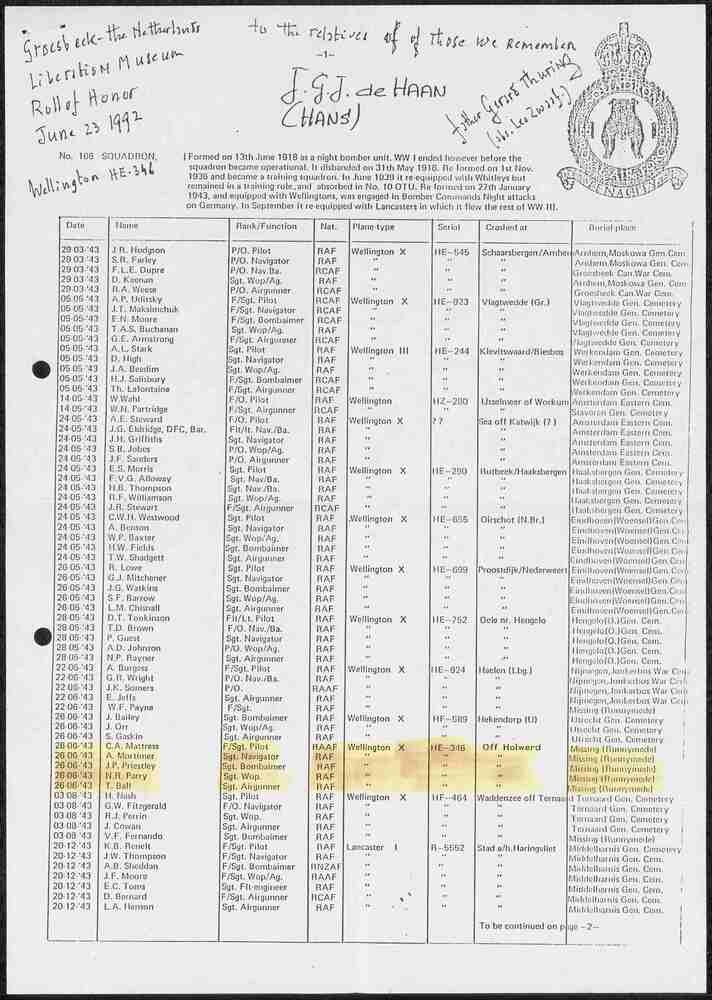 Groesbeek - the Netherlands
Liberation Museum
Roll of Honor
June 23 1992
to the relatives of of those we Remember
-1-
J.G.J. de HAAN
(HANS)
father Gerard Thuring
No. 166 SQUADRON,
Wellington HE-346
( Formed on 13th June 1918 as a night bomber unit. WW I ended however before the
squadron became operational. It disbanded on 31th May 1919. Re formed on 1st Nov.
1936 and became a training squadron. In June 1939 it re equipped with Whitleys but
remained in a training role, and absorbed in No. 10 OTU. Re formed on 27th January
1943, and equipped with Wellingtons, was engaged in Bomber Commands Night attacks
on Germany. In September it re equipped with Lancasters in which it flew the rest of WW II).
TENACITY
Date Name Rank/Function Nat. Plane type Serial Crashed at Burial place
29 03 '43 J.R. Hodgson P/O. Pilot RAF Wellington X HE-545 Schaarsbergen/Arnhem Arnhem,Moskowa Gen. Cem
29 03 '43 S.R. Farley P/O. Navigator RAF " " " Arnhem,Moskowa Gen. Cem
29 03 '43 F.L.E. Dupre P/O. Nav.Ba. RCAF " " " Groesbeek Can.War Cem.
29 03 '43 D. Keenan Sgt. Wop/Ag. RAF " " " Arnhem,Moskowa Gen. Cem
29 03 '43 R.A. Weese P/O. Airgunner RCAF " " " Groesbeek Can.War Cem.
05 05 '43 A.P. Uditsky F/Sgt. Pilot RCAF Wellington X HE-923 Vlagtwedde (Gr.) Vlagtwedde Gen. Cemetery
05 05 '43 J.T. Maksimchuk F/Sgt. Navigator RCAF " " " Vlagtwedde Gen. Cemetery
05 05 '43 E.N. Moore F/Sgt. Bombaimer RCAF " " " Vlagtwedde Gen. Cemetery
05 05 '43 T.A.S. Buchanan Sgt. Wop/Ag. RAF " " " Vlagtwedde Gen. Cemetery
05 05 '43 G.E. Armstrong F/Sgt. Airgunner RCAF " " " Vlagtwedde Gen. Cemetery
05 05 '43 A.L. Stark Sgt. Pilot RAF Wellington III HE-244 Klevitswaard/Biesbos Werkendam Gen. Cemetery
05 05 '43 D. High Sgt. Navigator RAF " " " Werkendam Gen. Cemetery
05 05 '43 J.A. Bendim Sgt. Wop/Ag. RAF " " " Werkendam Gen. Cemetery
05 05 '43 H.J. Salisbury F/Sgt. Bombaimer RCAF " " " Werkendam Gen. Cemetery
05 05 '43 Th. Lafontaine F/Sgt. Airgunner RCAF " " " Werkendam Gen. Cemetery
14 05 '43 W.Wahl F/O. Pilot RAF Wellington HZ-280 IJsselmeer of Workum Amsterdam Eastern Cem.
14 05 '43 W.N. Partridge F/Sgt. Airgunner RCAF " " Stavoren Gen. Cemetery
24 05 '43 A.E. Steward F/O. Pilot RAF Wellington X ?? Sea off Katwijk (?) Amsterdam Eastern Cem.
24 05 '43 J.G. Eldridge, DFC, Bar. Flt/lt. Nav./Ba. RAF " " Amsterdam Eastern Cem.
24 05 '43 J.H. Griffiths Sgt. Navigator RAF " " Amsterdam Eastern Cem.
24 05 '43 S.B. Jobes P/O. Wop/Ag. RAF " " Amsterdam Eastern Cem.
24 05 '43 J.F. Sanders P/O. Airgunner RAF " " Amsterdam Eastern Cem.
24 05 '43 E.S. Morris Sgt. Pilot RAF Wellington X HE-290 Rutbeek/Haaksbergen Haaksbergen Gen. Cemetery
24 05 '43 F.V.G. Alloway Sgt. Nav/Ba. RAF " " " Haaksbergen Gen. Cemetery
24 05 '43 H.B. Thompson Sgt. Nav./Ba. RAF " " " Haaksbergen Gen. Cemetery
24 05 '43 R.F. Williamson Sgt. Wop/Ag. RAF " " " Haaksbergen Gen. Cemetery
24 05 '43 J.R. Stewart F/Sgt. Airgunner RCAF " " " Haaksbergen Gen. Cemetery
24 05 '43 C.W.H. Westwood Sgt. Pilot RAF Wellington X HE-655 Oirschot (N.Br.) Eindhoven(Woensel)Gen.Cem
24 05 '43 A. Benson Sgt. Navigator RAF " " " Eindhoven(Woensel)Gen.Cem
24 05 '43 W.P. Baxter Sgt. Wop/Ag. RAF " " " Eindhoven(Woensel)Gen.Cem
24 05 '43 H.W. Fields Sgt. Bombaimer RAF " " " Eindhoven(Woensel)Gen.Cem
24 05 '43 T.W. Shadgett Sgt. Airgunner RAF " " " Eindhoven(Woensel)Gen.Cem
26 05 '43 R. Lowe Sgt. Pilot RAF Wellington X HE-699 Proostdijk/Nederweert Eindhoven(Woensel)Gen.Cem
26 05 '43 G.J. Mitchener Sgt. Navigator RAF " " " Eindhoven(Woensel)Gen.Cem
26 05 '43 J.G. Watkins Sgt. Bombaimer RAF " " " Eindhoven(Woensel)Gen.Cem
26 05 '43 S.F. Barrow Sgt. Wop/Ag. RAF " " " Eindhoven(Woensel)Gen.Cem
26 05 '43 L.M. Chisnall Sgt. Airgunner RAF " " " Eindhoven(Woensel)Gen.Cem
28 05 '43 D.T. Tomkinson Flt/Lt. Pilot RAF Wellington X HE-752 Oele nr. Hengelo Hengelo(O.)Gen. Cem.
28 05 '43 T.D. Brown F/O. Nav./Ba. RAF " " " Hengelo(O.)Gen. Cem.
28 05 '43 P. Guest Sgt. Navigator RAF " " " Hengelo(O.)Gen. Cem.
28 05 '43 A.D. Johnson P/O. Wop/Ag. RAF " " " Hengelo(O.)Gen. Cem.
28 05 '43 N.P. Rayner Sgt. Airgunner RAF " " " Hengelo(O.)Gen. Cem.
22 06 '43 A. Burgess F/Sgt. Pilot RAF Wellington X HE-924 Haelen (Lbg.) Nijmegen,Jonkerbos War Cem
22 06 '43 G.R. Wright P/O. Nav./Ba. RAF " " " Nijmegen,Jonkerbos War Cem
22 06 '43 J.K. Somers P/O. RAAF " " " Nijmegen,Jonkerbos War Cem
22 06 '43 E. Jeffs Sgt. Airgunner RAF " " " Nijmegen,Jonkerbos War Cem
22 06 '43 W.F. Payne F/Sgt. RAF " " " Missing (Runnymede)
26 06 '43 J. Bailey Sgt. Bombaimer RAF Wellington X HF-589 Hekendorp (U) Utrecht Gen. Cemetery
26 06 '43 J. Orr Sgt. Wop/Ag. RAF " " " Utrecht Gen. Cemetery
26 06 '43 S. Gaskin Sgt. Airgunner RAF " " " Utrecht Gen. Cemetery
26 06 '43 C.A. Mattress F/Sgt. Pilot RAAF Wellington X HE-346 Off Holwerd Missing (Runnymede)
26 06 '43 A. Mortimer Sgt. Navigator RAF " " " Missing (Runnymede)
26 06 '43 J.P. Priestley Sgt. Bombaimer RAF " " " Missing (Runnymede)
26 06 '43 N.R. Parry Sgt. Wop. RAF " " " Missing (Runnymede)
26 06 '43 T. Ball Sgt. Airgunner RAF " " " Missing (Runnymede)
03 08 '43 H. Nash Sgt. Pilot RAF Wellington X HF-464 Waddenzee off Ternaard Ternaard Gen. Cemetery
03 08 '43 G.W. Fitzgerald F/O. Navigator RAF " " " Ternaard Gen. Cemetery
03 08 '43 R.J. Perrin Sgt. Wop. RAF " " " Ternaard Gen. Cemetery
03 08 '43 J. Cowan Sgt. Airgunner RAF " " " Ternaard Gen. Cemetery
03 08 '43 V.F. Fernando Sgt. Bombaimer RAF " " " Missing (Runnymede)
20-12-'43 K.B. Renelt F/Sgt. Pilot RAF Lancaster I R-5552 Stad a/h.Haringvliet Middelharnis Gen. Cemetery
20-12-'43 J.W. Thompson F/Sgt. Navigator RAF " " " Middelharnis Gen. Cem.
20-12-'43 A.B. Sheddan F/Sgt. Bombaimer RNZAF " " " Middelharnis Gen. Cem.
20-12-'43 J.F. Moore F/Sgt. Wop/Ag. RAAF " " " Middelharnis Gen. Cem.
20-12-'43 E.C. Tong Sgt. Flt-engineer RAF " " " Middelharnis Gen. Cem.
20-12-'43 D. Bernard F/Sgt. Airgunner RCAF " " " Middelharnis Gen. Cem.
20-12-'43 L.A. Henson Sgt. Airgunner RAF " " " Middelharnis Gen. Cem.
To be continued on page -2-